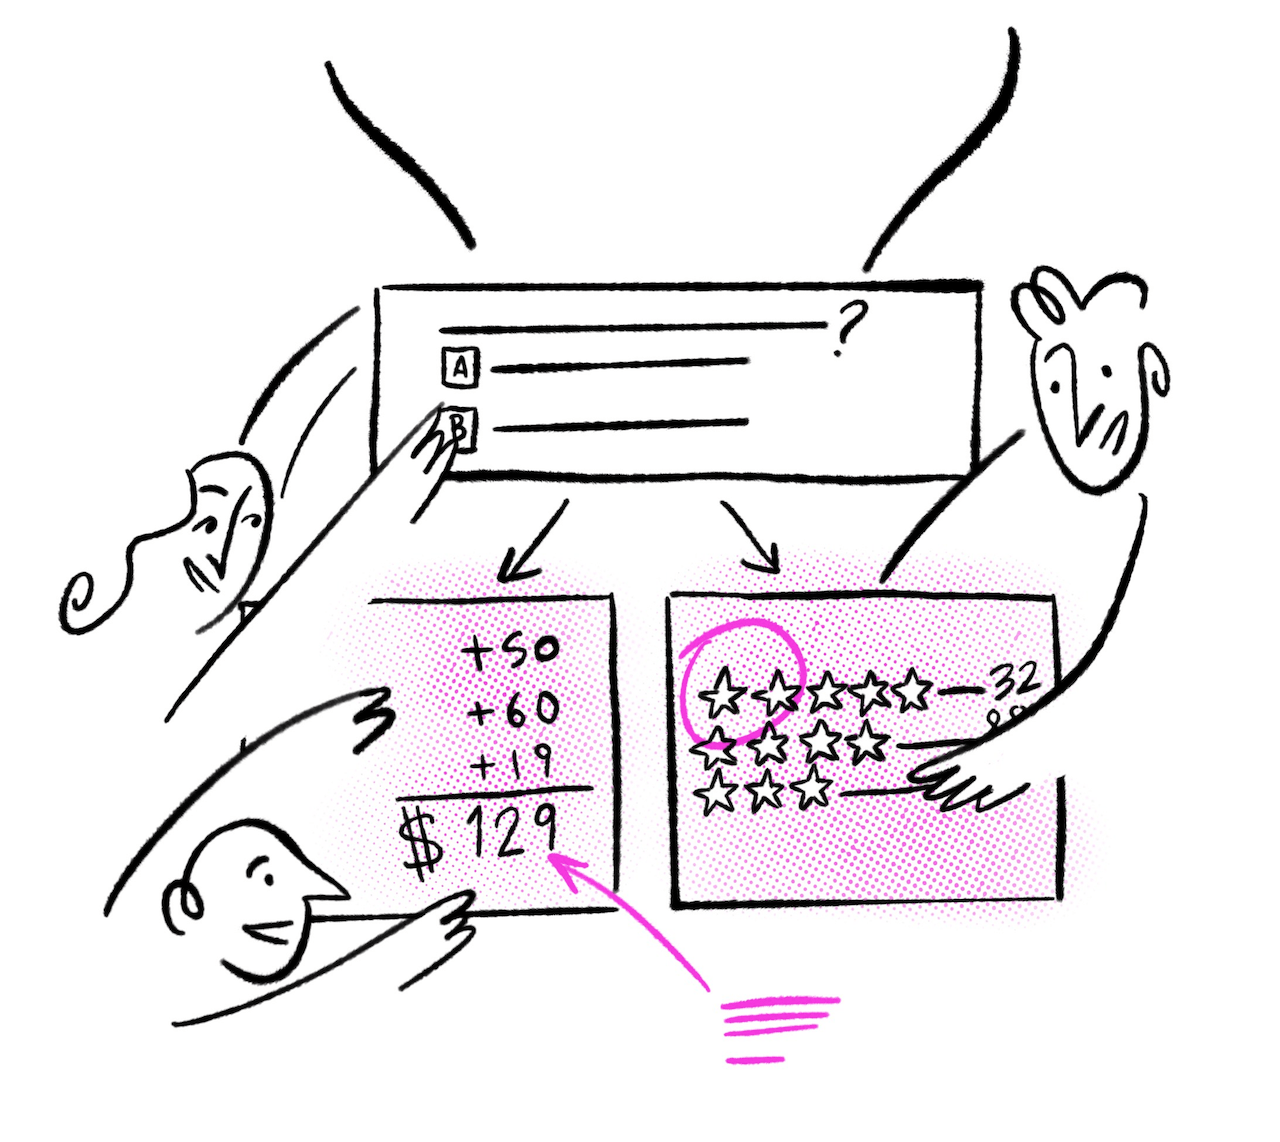 ?
A
B
+50
+60
+19
$ 129
32